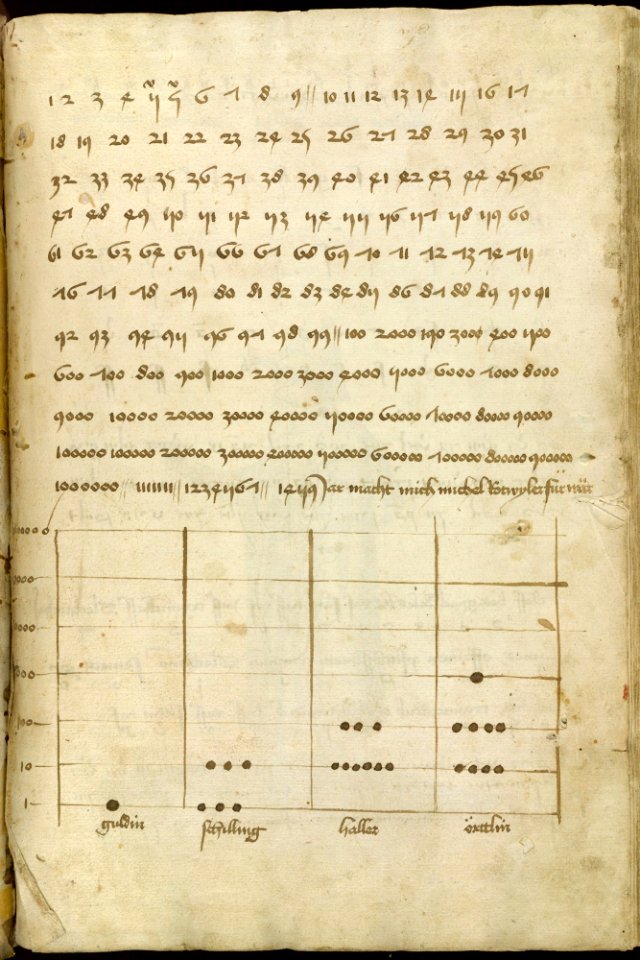 1 2 3 4 5 5 6 7 8 9 // 10 11 12 13 14 15 16 17
18 19 20 21 22 23 24 25 26 27 28 29 30 31
32 33 34 35 36 37 38 39 40 41 42 43 44 45 46
47 48 49 50 51 52 53 54 55 56 57 58 59 60
61 62 63 64 65 66 67 68 69 70 71 72 73 74 75
76 77 78 79 80 81 82 83 84 85 86 87 88 89 90 91
92 93 94 95 96 97 98 99 // 100 2000 190 3000 400 500
600 700 800 900 1000 2000 3000 4000 5000 6000 7000 8000
9000 10000 20000 30000 40000 50000 60000 70000 80000 90000
100000 100000 200000 300000 400000 500000 600000 700000 800000 900000
1000000 // 1111111 // 1234567 // 1459 Jar macht mich michel rotwyler für wär
100
10
1
guldin schilling haller örttlin